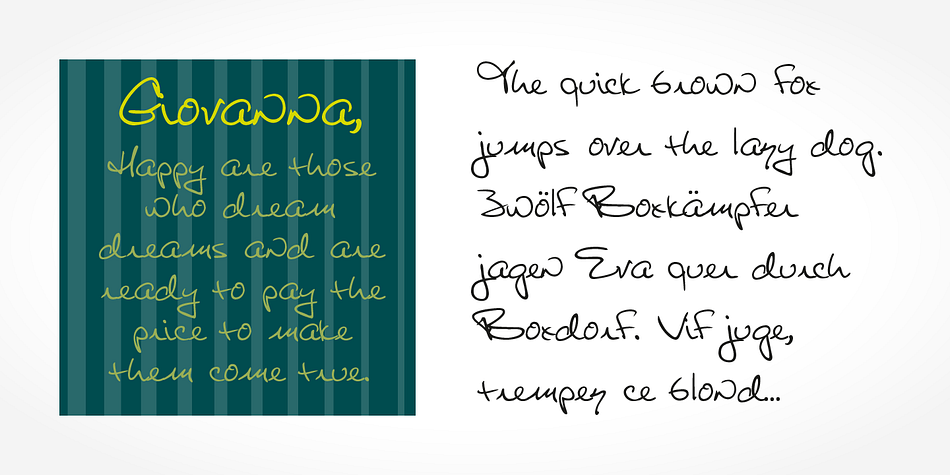 Giovanna,
Happy are those
who dream
dreams and are
ready to pay the
price to make
them come true.
The quick brown fox
jumps over the lazy dog.
Zwölf Boxkämpfer
jagen Eva quer durch
Boxdorf. Vif juge,
trempez ce blond...